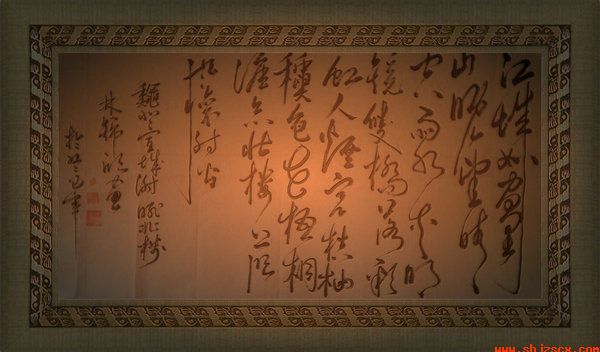 江城如畫里
山曉望晴
空兩水夾明
鏡雙橋落彩
虹人煙寒橘柚
秋色老梧桐
誰念北樓上臨
風懷謝公
秋登宣城謝朓北樓
林錦
www.shjzscx.com